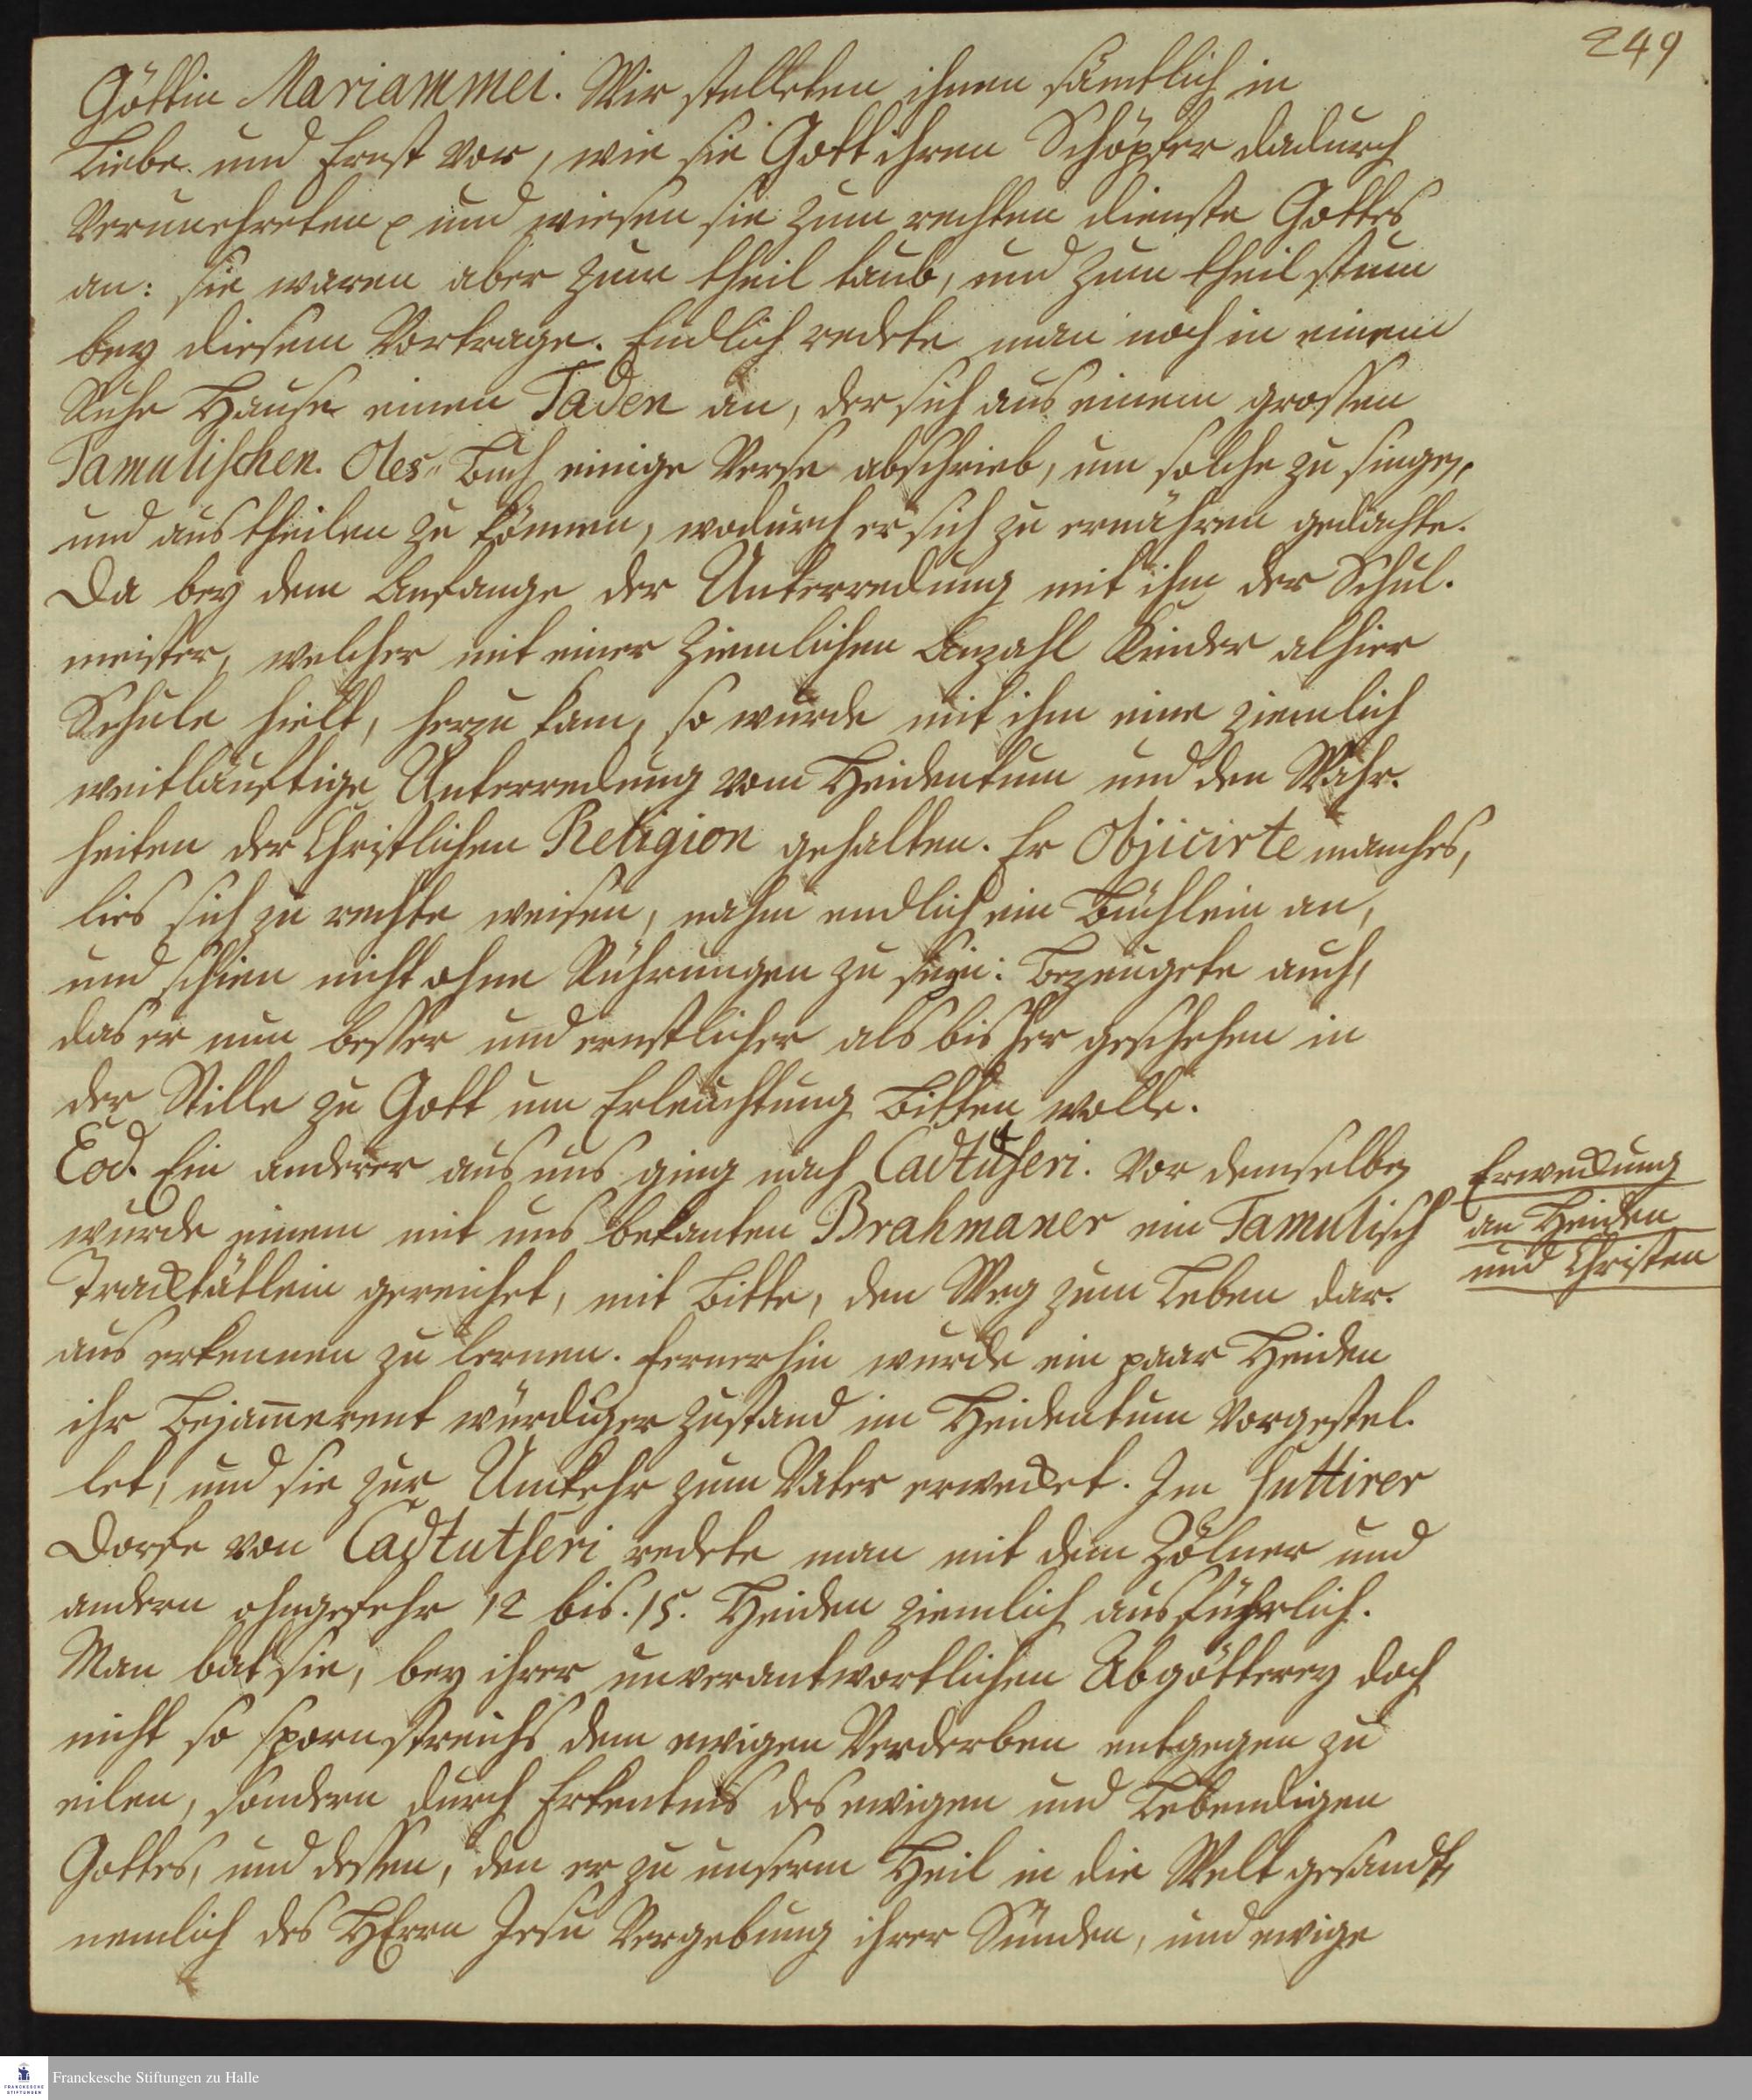 249
Göttin Mariammei. Wir stelleten ihnen sämtlich in
Liebe und Ernst vor, wie sie Gott ihren Schöpfer dadurch
verunehreten, und wiesen sie zum rechten dienste Gottes
an: sie waren aber zum theil taub, und zum theil stum
bey diesem Vortrage. Endlich redete man noch in einem
Ruhe Hause einen Taden an, der sich aus einem grossen
Tamulischen Oles- Buch einige Verse abschrieb, um solche zu singen,
und austheilen zu können, wodurch er sich zu ernähren gedachte.
Da bey dem Anfange der Unterredung mit ihm der Schul-
meister, welcher mit einer ziemlichen Anzahl Kinder alhier
Schule hielt, herzu kam, so wurde mit ihm eine ziemlich
weitläuftige Unterredung vom Heidentum und den Wahr-
heiten der Christlichen Religion gehalten. Er Objicirte manches,
lies sich zu rechte weisen, nahm endlich ein Büchlein an,
und schien nicht ohne Rührungen zu seyn: Bezeugete auch,
das er nun besser und ernstlicher als bisher geschehen in
der Stille zu Gott um Erleuchtung Bitten wolle.
Eod. Ein anderer aus uns ging nach Cadtutseri. Vor demselben
wurde einem mit uns bekanten Brahmaner ein Tamulisch
Tracktätlein gereichet, mit Bitte, den Weg zum Leben dar-
aus erkennen zu lernen. Fernerhin wurde ein paar Heiden
ihr Bejam̄erens würdiger Zustand im Heidentum vorgestel-
let, und sie zur Umkehr zum Vater erwecket. Im Suttirer
Dorfe von Cadtutseri redete man mit dem Zölner und
andern ohngefehr 12 bis 15. Heiden ziemlich ausführlich.
Man bat sie, bey ihrer unverantwortlichen Abgötterey doch
nicht so spornstreichs dem ewigen Verderben entgegen zu
eilen, sondern durch Erkentnis des ewigen und Lebendigen
Gottes, und dessen, den er zu unserm Heil in die Welt gesandt,
nemlich des HErrn Jesu Vergebung ihrer Sünden, und ewige
Erweckung
an Heiden
und Christen
FRANCKESCHE
STIFTUNGEN
Franckesche Stiftungen zu Halle